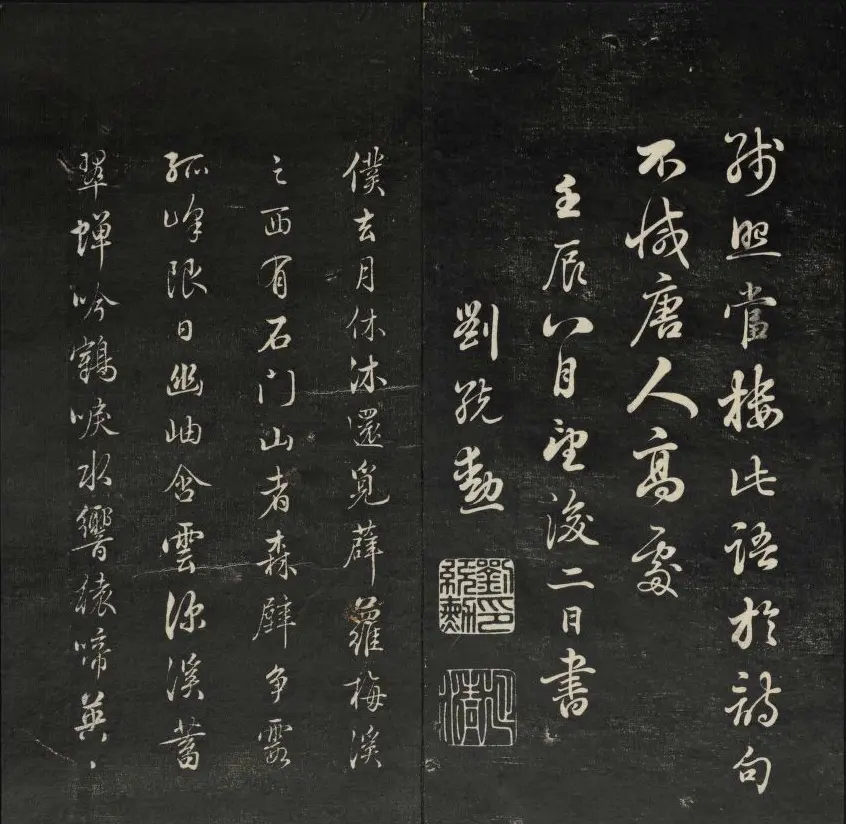 殘照當樓此語於詩句
不減唐人高處
壬辰八月望後二日書
劉統勳
劉印統勳
延清
僕去月休沐還覓薜蘿梅溪
之西有石门山者森壁争霞
孤峰限日幽岫含雲深溪蓄
翠蟬吟鶴唳水響猿啼英〻